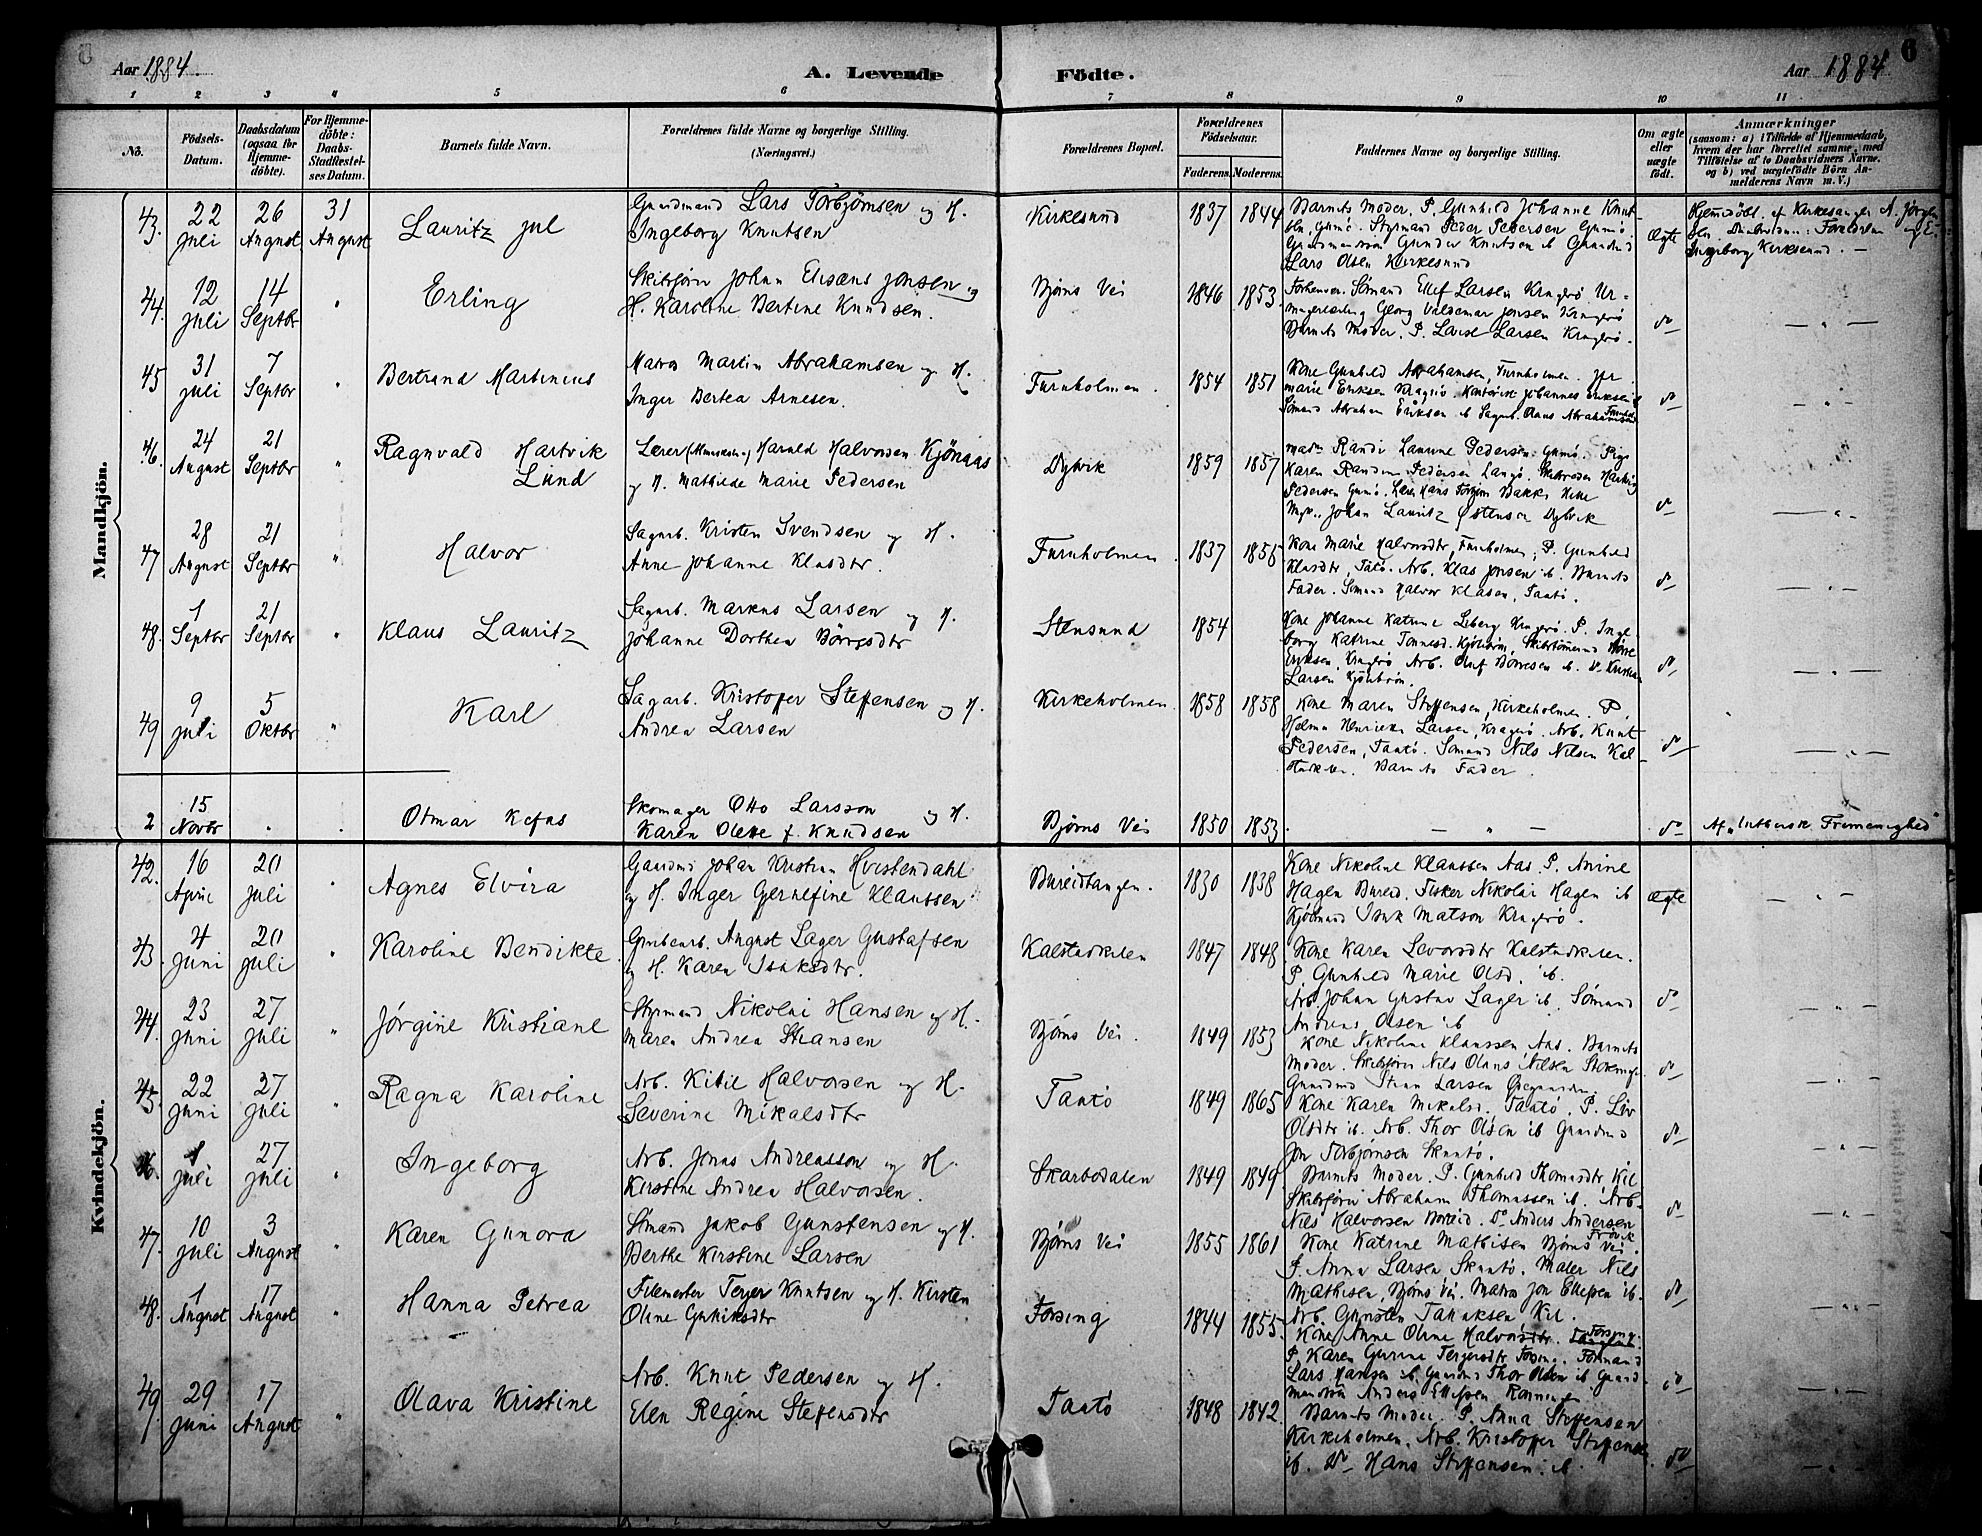 Aar 1884.
A. Levende Födte.
Aar 1884
6
1 2 3 4 5 6 7 8 9 10 11
No.
Födsels-
Datum.
Daabsdatum
(ogsaa for
Hjemme-
döbte).
For Hjemme-
döbte:
Daabs-
Stadfæstel-
ses Datum.
Barnets fulde Navn.
Forældrenes fulde Navne og borgerlige Stilling.
(Næringsvei.)
Forældrenes Bopæl.
Forældrenes
Födselsaar.
Faderens. Moderens.
Faddernes Navne og borgerlige Stilling.
Om ægte
eller
uægte
födt.
Anmærkninger
(saasom: a) i Tilfælde af Hjemmedaab,
hvem der har forrettet samme, med
Tilföielse af to Daabsvidners Navne,
og b) ved uægtefödte Börn An-
melderens Navn m. V.)
Mandkjön.
43. 22 Juli 26 August 31 August
Lauritz Jul
Gaardmand Lars Torbjörnsen og H.
Ingeborg Knutsen
Kirkesund
1837 1844
Barnets Moder. P. Gunhild Johanne Knut-
sen, Gumö. Styrmand Peder Pedersen Gumö.
Gunder Knutsen ib Gaardmd
Lars Olsen Kirkesund
Ægte
Hjemmedöbt af Kirkesanger A. Jörgen-
sen Forældrene og E.
Ingeborg Kirkesund. —
44. 12 Juli 14 Septbr "
Erling
Skibsförer Johan Elisæus Jensen og
H. Karoline Bertine Knudsen.
Bjørns Vei
1846 1853.
Forhenv. Sömand Ellef Larsen Kragerö Ur-
magerlærling Georg Valdemar Jensen Kragerö
Barnets Moder. P. Lovise Larsen Kragerö.
do
— " —
45 31 Juli 7 Septbr "
Bertrand Martinius
Matros Martin Abrahamsen og H.
Inger Bertea Arnesen.
Furuholmen.
1854 1851
Kone Gunhild Abrahamsen, Furuholmen. Jfr
Marie Eriksen Kragerö. Kontorist Johannes Eriksen ib
Sömand Abraham Eriksen ib Sagarb. Claus Abrahamsen
do
— " —
46. 24 August 21 Septbr "
Ragnvald Hartvik
Lund
Lærer Harald Halvorsen Kjönaas
og H. Mathilde Marie Pedersen
Dybvik
1859 1857
Randi Laurine Pedersen Gumö. Pige
Karen Pedersen Langö. Hartvig
Pedersen Gumö. Lærer Hans Bakke
Johan Lauritz Østensen Dybvik
do
— " —
47 28 August 21 Septbr "
Halvor
Sagarb. Kristen Svendsen og H.
Anne Johanne Klasdtr.
Furuholmen.
1837 1855
Kone Marie Halvorsdtr, Furuholmen, P. Gunhild
Klasdtr, Taatö. Arb. Klas Jensen ib. Barnets
Fader. Sömand Halvor Klasen, Taatö.
do
— " —
48. 1 Septbr 21 Septbr "
Klaus Lauritz
Sagarb. Markus Larsen og H.
Johanne Dorthea Börresdtr
Stensund
1854
Kone Johanne Katrine Kragerö. P. Inge-
borg Katrine Börre
Eriksen, Kragerö Arb. Oluf Börresen ib. Do Kristian
Larsen
do
— " —
49 9 Juli 5 Oktbr "
Karl
Sagarb. Kristoffer Steffensen og H.
Andrea Larsen
Kirkeholmen.
1858 1858
Kone Maren Steffensen, Kirkeholmen. P.
Helma Henriette Larsen, Kragerö. Arb. Knut
Pedersen, Taatö. Sömand Nils Nilsen Kal-
Barnets Fader.
do
— " —
2 15 Novbr " "
Otmar Kefas
Skomager Otto Larsson og H.
Karen Olette f. Knudsen
Bjørns Vei
1850 1853.
— " —
do
Af "luthersk Frimenighed"
Kvindekjön.
42. 16 April 20 Juli "
Agnes Elvira
Gaardmd Johan Kristian Hvistendahl
og H. Inger Gernefine Klaussen
Bureidtangen.
1830 1838
Kone Nikoline Klaussen Aas P. Anine
Hagen Bureid. Fisker Nikolai Hagen ib
Kjöbmd Isak Matson Kragerö.
Ægte
— " —
43. 4 Juni 20 Juli "
Karoline Bendikte
Grubearb. August Lager Gustafsen
og H. Karen Isaksdtr.
Kalstadkilen
1847 1848
Kone Karen Levorsdtr Kalstadkilen.
P. Gunhild Marie Olsd. ib.
Arb. Johan Gustav Lager ib. Sömand
Andreas Olsen ib
do
— " —
44. 23 Juni 27 Juli "
Jörgine Kristiane
Styrmand Nikolai Hansen og H.
Maren Andrea Stiansen
Bjørns Vei.
1849 1853
Kone Nikoline Klaussen Aas. Barnets
Moder. Skibsförer Nils Olaus Nilsen
Gaardmd Stian Larsen
do
— " —
45. 22 Juni 27 Juli "
Ragna Karoline
Arb. Kitil Halvorsen og H.
Severine Mikalsdtr
Taatö
1849 1865
Kone Karen Mikalsd. Taatö. P. Liv
Olsdtr ib. Arb. Thor Olsen ib Gaardmd
Jon Torbjörnsen Skaatö.
do
— " —
46. 1 Juli 27 Juli "
Ingeborg
Arb. Jonas Andreasson og H.
Kirstine Andrea Halvorsen.
Skarbodalen
1849 1849
Barnets Moder. P. Gunhild Thomasdtr Kil
Skibsförer Abraham Thomassen ib. Arb.
Nils Halvorsen Do Anders Andersen
do
— " —
47. 10 Juli 3 August "
Karen Gunora
Sömand Jakob Gunstensen og H.
Berthe Kirstine Larsen
Bjørns Vei
1855 1861
Kone Katrine Mathisen Bjørns Vei.
P. Anna Larsen Skaatö. Maler Nils
Mathisen, Bjørns Vei. Matros Jon Ellefsen ib.
Arb. Gunsten Kil.
do
— " —
48. 1 August 17 August "
Hanna Petrea
Filemester Terjer Knutsen og H. Kirsten
Oline
Fossing
1844 1855.
Kone Anne Oline Halvorsdtr. Fossing.
P. Karen Gurine Terjersdtr Fossing. Formand
Lars Hansen ib. Gaardmd Thor Olsen ib Gaard-
Anders Ellefsen
do
— " —
49. 29 Juni 17 August "
Olava Kristine
Arb. Knut Pedersen og H.
Elen Regine Steffensdtr
Taatö
1848 1842
Barnets Moder. P. Anna Steffensen
Kirkeholmen. Arb. Kristoffer Steffensen
ib. Do Hans Steffensen ib.
do
— " —